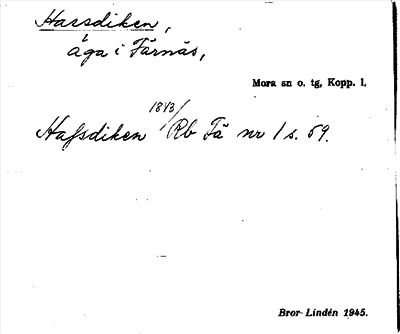 Harsdiken,
äga i Färnäs,
Mora sn o. tg, Kopp. l.
1843/
Hafsdiken Rb Fä nr 1 s. 59.
Bror Lindén 1945.